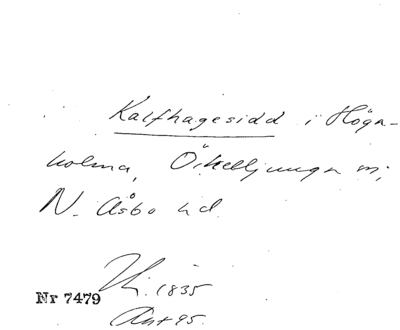 Kalfhagesidd i Högn-
holma, Örkelljunga sn,
N. Åsbo hd
1835
Nr 7479
Ant 95.